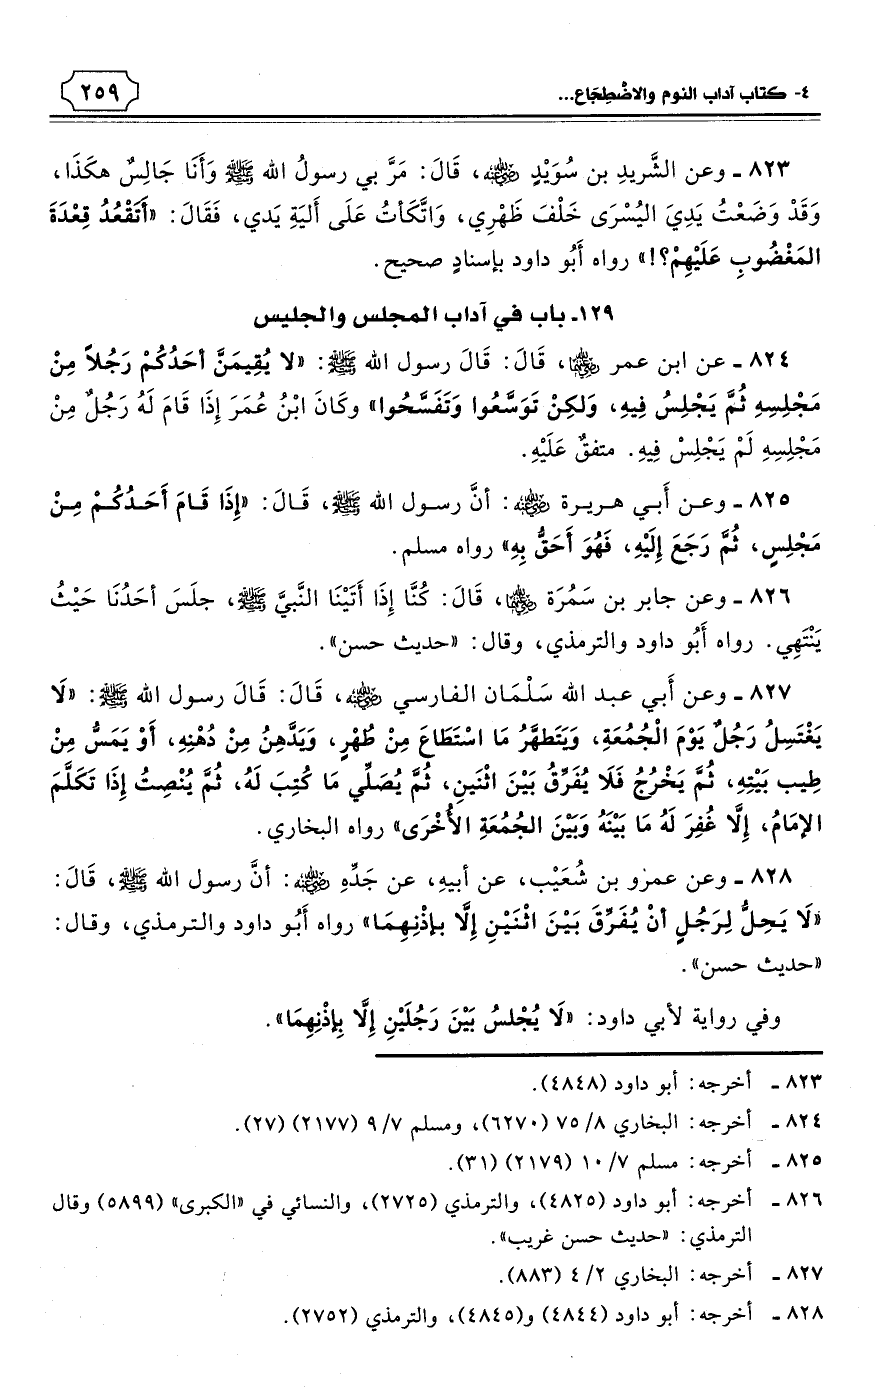 ٤- كتاب آداب النوم والاضْطِجَاع...
٢٥٩
٨٢٣ ـ وعن الشَّريدِ بن سُوَيْدٍ رضي الله عنه، قَالَ: مَرَّ بي رسولُ الله ﷺ وَأنَا جَالِسٌ هكَذَا،
وَقَدْ وَضَعْتُ يَدِيَ اليُسْرَى خَلْفَ ظَهْرِي، وَاتَّكَأتُ عَلَى أَليَةِ يَدي، فَقَالَ: «أَتَقْعُدُ قِعْدَةَ
المَغْضُوبِ عَلَيْهِمْ؟!» رواه أَبُو داود بإسنادٍ صحيح.
١٢٩ـ باب في آداب المجلس والجليس
٨٢٤ ـ عن ابن عمر رضي الله عنهما، قَالَ: قَالَ رسول الله ﷺ: «لا يُقِيمَنَّ أحَدُكُمْ رَجُلاً مِنْ
مَجْلِسِهِ ثُمَّ يَجْلِسُ فِيهِ، وَلكِنْ تَوَسَّعُوا وَتَفَسَّحُوا» وكَانَ ابْنُ عُمَرَ إِذَا قَامَ لَهُ رَجُلٌ مِنْ
مَجْلِسِهِ لَمْ يَجْلِسْ فِيهِ. متفقٌ عَلَيْهِ.
٨٢٥ ـ وعن أَبي هريرة رضي الله عنه: أنَّ رسول الله ﷺ، قَالَ: «إِذَا قَامَ أَحَدُكُمْ مِنْ
مَجْلِسٍ، ثُمَّ رَجَعَ إِلَيْهِ، فَهُوَ أَحَقُّ بِهِ» رواه مسلم.
٨٢٦ ـ وعن جابر بن سَمُرَة رضي الله عنهما، قَالَ: كُنَّا إِذَا أَتَيْنَا النَّبيَّ ﷺ، جلَسَ أحَدُنَا حَيْثُ
يَنْتَهِي. رواه أَبُو داود والترمذي، وقال: «حديث حسن».
٨٢٧ ـ وعن أَبي عبد الله سَلْمَان الفارسي رضي الله عنه، قَالَ: قَالَ رسول الله ﷺ: «لَا
يَغْتَسِلُ رَجُلٌ يَوْمَ الْجُمُعَةِ، وَيَتَطهَّرُ مَا اسْتَطَاعَ مِنْ طُهْرٍ، وَيَدَّهِنُ مِنْ دُهْنِهِ، أَوْ يَمَسُّ مِنْ
طِيب بَيْتِهِ، ثُمَّ يَخْرُجُ فَلَا يُفَرِّقُ بَيْنَ اثْنَينِ، ثُمَّ يُصَلِّي مَا كُتِبَ لَهُ، ثُمَّ يُنْصِتُ إِذَا تَكَلَّمَ
الإمَامُ، إِلَّا غُفِرَ لَهُ مَا بَيْنَهُ وَبَيْنَ الجُمُعَةِ الأُخْرَى» رواه البخاري.
٨٢٨ ـ وعن عمرو بن شُعَيْب، عن أبيهِ، عن جَدِّهِ رضي الله عنه: أنَّ رسول الله ﷺ، قَالَ:
«لَا يَحِلُّ لِرَجُلٍ أنْ يُفَرِّقَ بَيْنَ اثْنَيْنِ إِلَّا بإذْنِهِمَا» رواه أَبُو داود والترمذي، وقال:
«حديث حسن».
وفي رواية لأبي داود: «لَا يُجْلسُ بَيْنَ رَجُلَيْنِ إِلَّا بِإِذْنِهِمَا».
٨٢٣ ـ أخرجه: أبو داود (٤٨٤٨).
٨٢٤ ـ أخرجه: البخاري ٧٥/٨ (٦٢٧٠)، ومسلم ٩/٧ (٢١٧٧) (٢٧).
٨٢٥ ـ أخرجه: مسلم ١٠/٧ (٢١٧٩) (٣١).
٨٢٦ ـ أخرجه: أبو داود (٤٨٢٥)، والترمذي (٢٧٢٥)، والنسائي في «الكبرى» (٥٨٩٩) وقال
الترمذي: «حديث حسن غريب».
٨٢٧ ـ أخرجه: البخاري ٤/٢ (٨٨٣).
٨٢٨ ـ أخرجه: أبو داود (٤٨٤٤) و(٤٨٤٥)، والترمذي (٢٧٥٢).